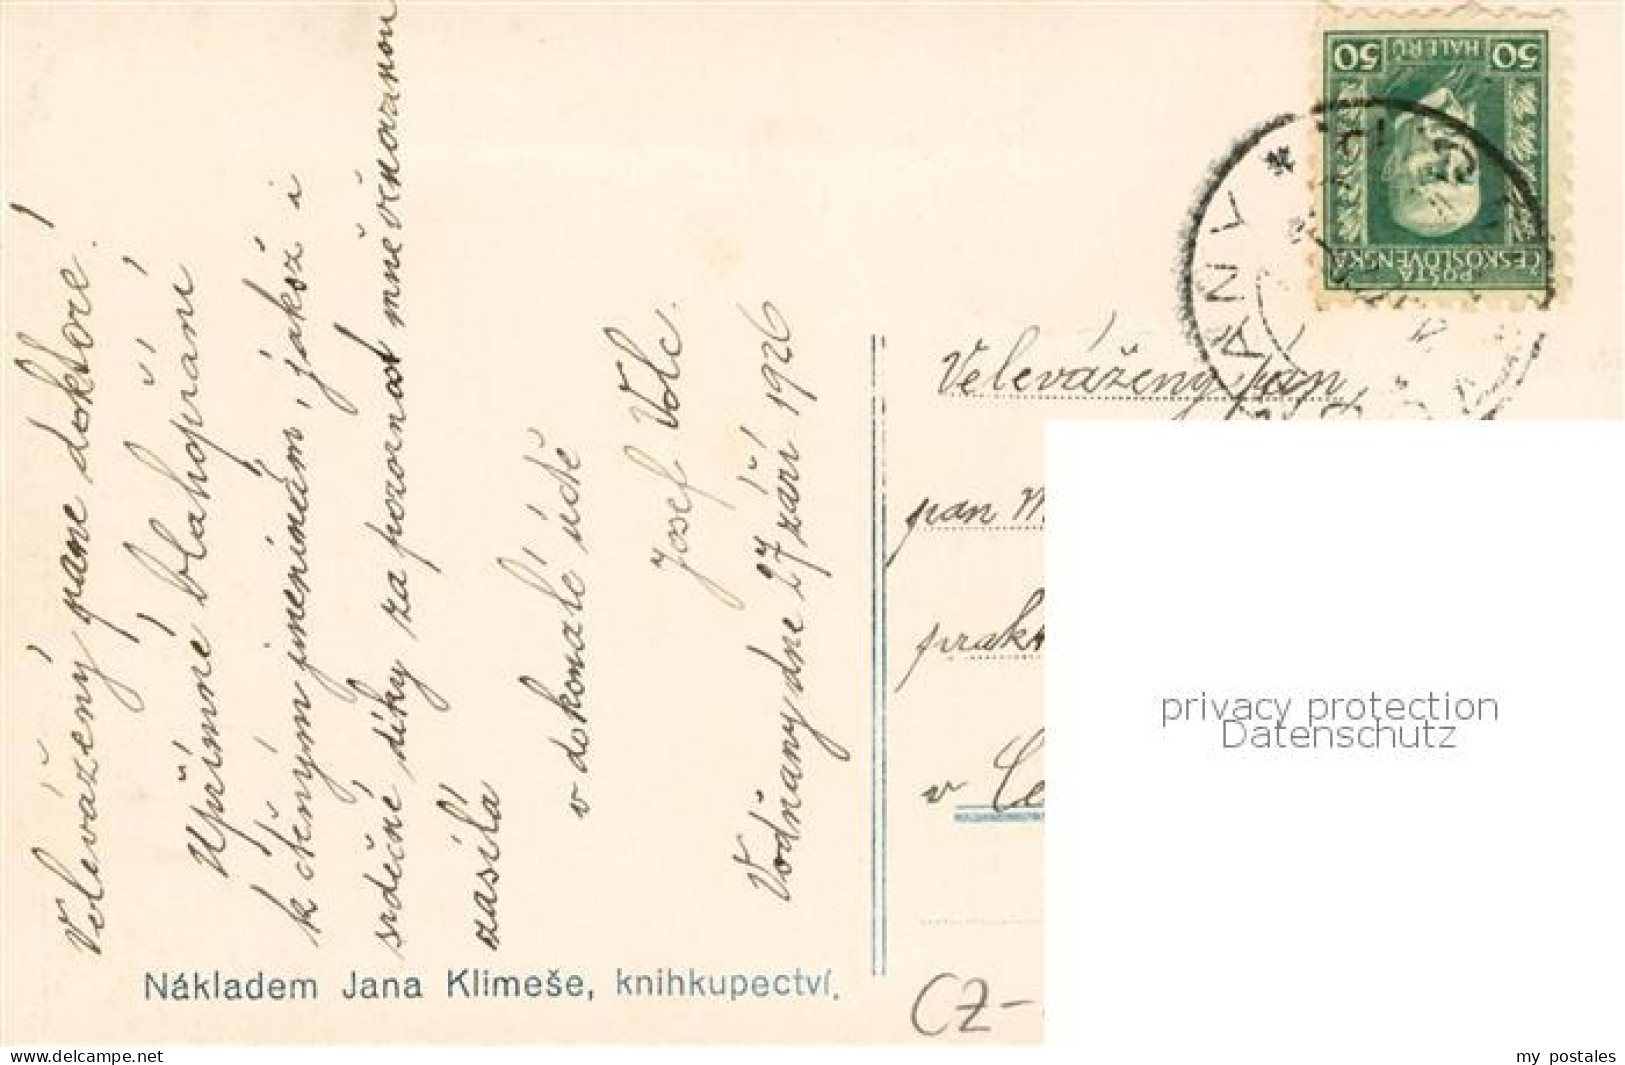 Velevážený pane doktore!
Upřímné blahopřání
k cteným jmeninám, jakož i
srdečné díky za pozornost mně věnovanou
zasílá
v dokonalé úctě
Josef Volc.
Vodňany dne 27 září 1926
Nákladem Jana Klimeše, knihkupectví.
50 HALÉŘŮ 50
POŠTA
ČESKOSLOVENSKÁ
Velevážený pán
pan M
prakt
v Če
CZ-
privacy protection
Datenschutz
Find this item on delcampe.net
my postales